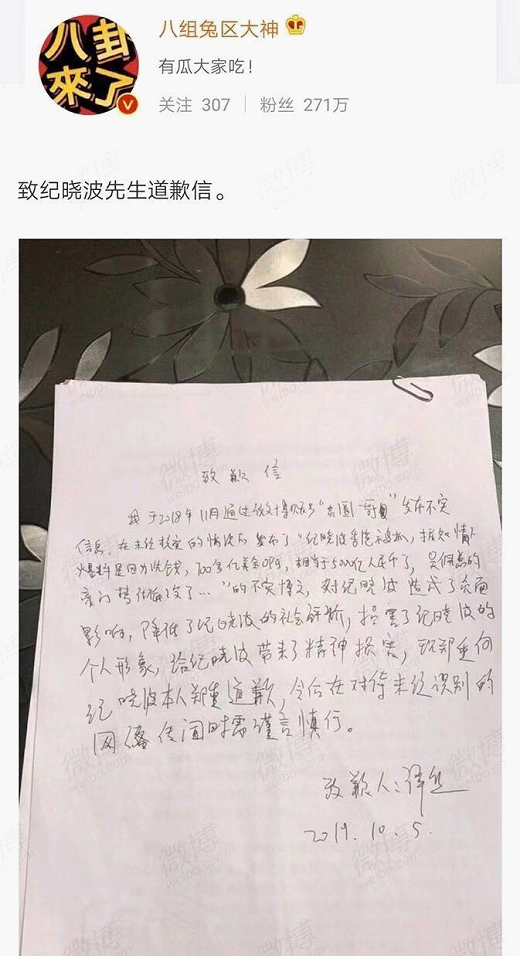 八卦
來了
八组兔区大神
有瓜大家吃！
关注 307 | 粉丝 271万
致纪晓波先生道歉信。
致歉信
我于2018年11月通过微博账号"
"发布不实
信息，在未经核实的情况下发布了"纪晓波香港被抓，据知情人
爆料是因为洗钱，700多亿美金OMG，相当于5000亿人民币了，吴佩慈的
豪门梦
了…"的不实博文，对纪晓波造成了负面
影响，降低了纪晓波的社会评价，损害了纪晓波的
个人形象，给纪晓波带来了精神损害，现郑重向
纪晓波本人郑重道歉，今后在对待未经识别的
网络传闻时需谨言慎行。
致歉人：
2019.10.5.